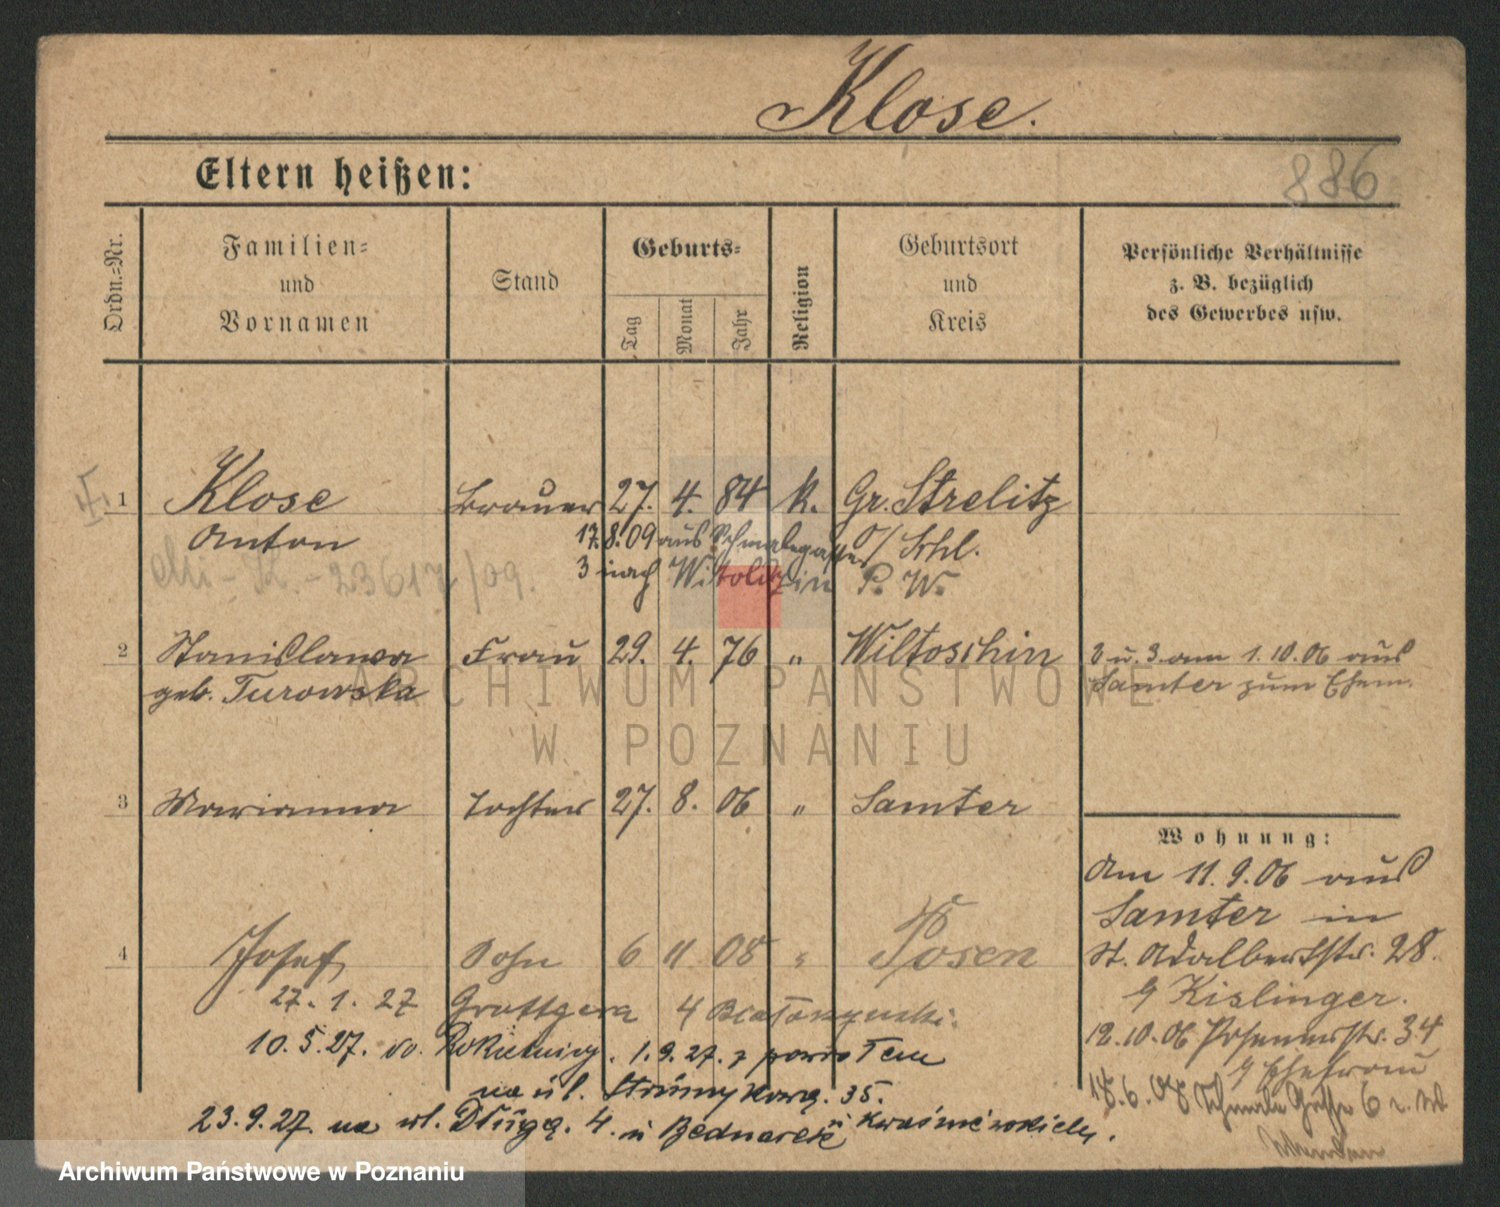 Klose.
Eltern heißen:
886
Ordn.=Nr.
Familien=
und
Vornamen
Stand
Geburts=
Tag
Monat
Jahr
Religion
Geburtsort
und
Kreis
Persönliche Verhältnisse
z. B. bezüglich
des Gewerbes usw.
1
Klose
Brauer
27.
4.
84
k.
Gr. Strelitz
Anton
17.8.09 aus Schmalegasse
O/Schl.
3 nach Witoldzin P. W.
23617/09.
2
Stanislawa
Frau
29.
4.
76
"
Wiltoschin
2 u. 3 am 1.10.06 aus
geb. Turowska
Samter zum Ehem.
ARCHIWUM PAŃSTWOWE
W POZNANIU
3
Marianna
Tochter
27.
8.
06
"
Samter
Wohnung:
Am 11.9.06 aus
Samter in
St. Adalbertstr. 28.
b/ Kislinger.
12.10.06 Posenerstr. 34
b/ Ehefrau
18.6.08 Schmale Gasse 6
4
Josef
Sohn
6
11
08
"
Posen
27.1.27 Grottgera 4
10.5.27. do Rokietnicy. 1.9.27. z powrotem
na ul. Strumykową. 35.
23.9.27. na ul. Długą. 4. u Bednarek u
Archiwum Państwowe w Poznaniu